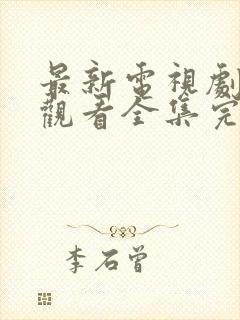 最新電視劇
觀看全集完
李石曾